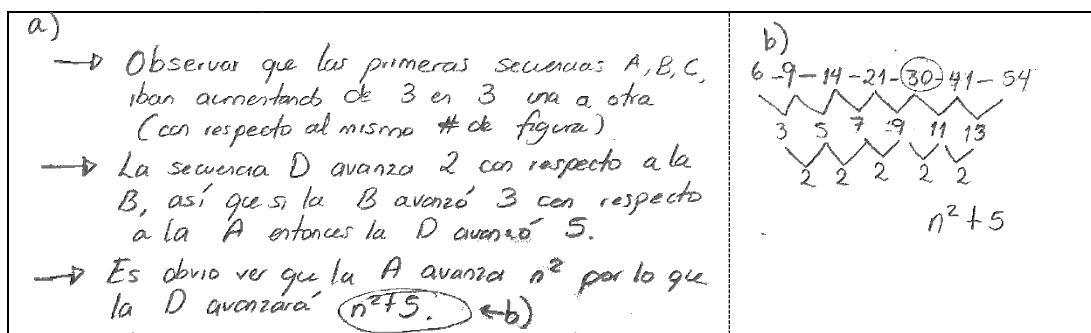 a)
→ Observar que las primeras secuencias A, B, C,
iban aumentando de 3 en 3 una a otra
(con respecto al mismo # de figura)
→ La secuencia D avanza 2 con respecto a la
B, así que si la B avanzó 3 con respecto
a la A entonces la D avanzó 5.
→ Es obvio ver que la A avanza n² por lo que
la D avanzará n²+5. ←b)
b)
6-9-14-21-30-41-54
3 5 7 9 11 13
2 2 2 2 2
n²+5